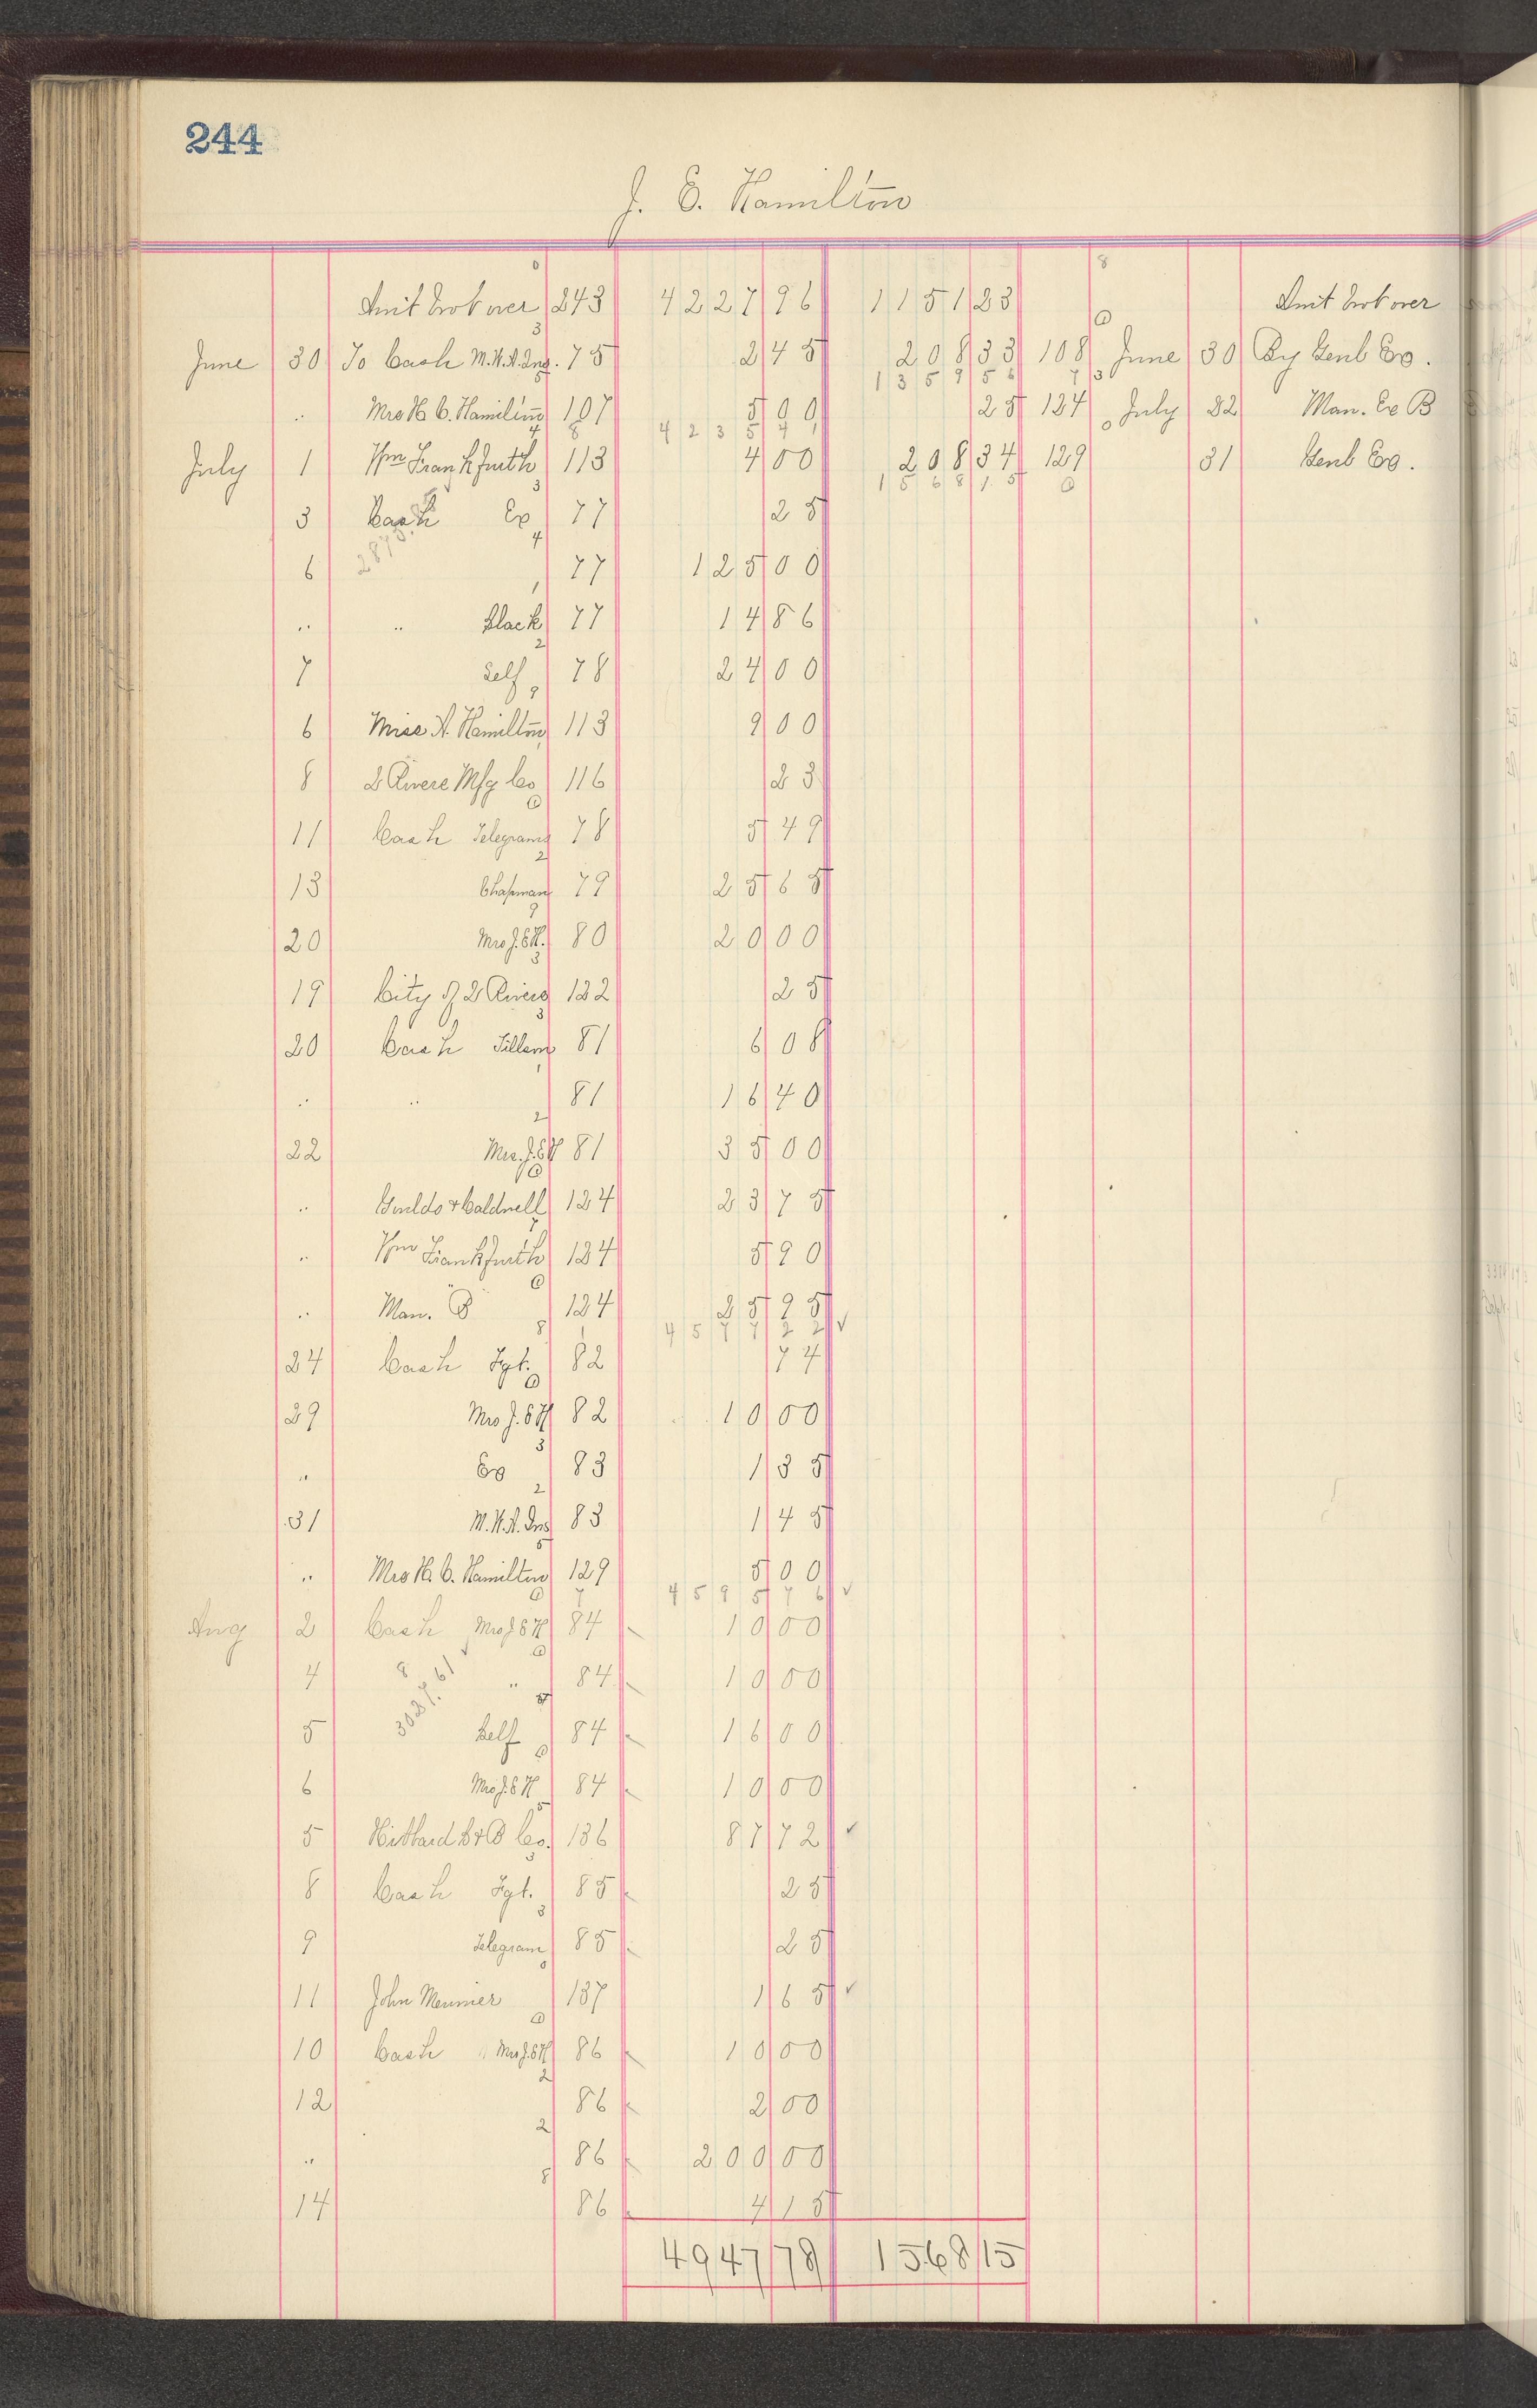 244
J. E. Hamilton
Amt brot over 243 4227 96 1151 23 Amt brot over
June 30 To Cash M.H.A. Ins. 75 2 45 208 33 108 June 30 By Genl Ex.
1359 56
" Mrs H. C. Hamilton 107 5 00 25 124 July 22 Man. Co B
4235 41
July 1 Wm Frankfurth 113 4 00 208 34 129 31 Genl Ex.
1568 15
3 Cash Ex 77 25
2875.
6 77 125 00
" " Black 77 14 86
7 Self 78 24 00
6 Miss A. Hamilton 113 9 00
8 2 Rivers Mfg Co 116 23
11 Cash Telegrams 78 5 49
13 Chapman 79 25 65
20 Mrs J.E.H. 80 20 00
19 City of 2 Rivers 122 25
20 Cash Tillema 81 6 08
" " 81 16 40
22 Mrs. J.E.H 81 35 00
" Goulds & Caldwell 124 23 75
" Wm Frankfurth 124 5 90
" Man. B 124 25 95
4577 22 ✓
24 Cash Fgt. 82 74
29 Mrs J.E.H 82 10 00
" Ex 83 1 35
31 M.H.A. Ins 83 1 45
" Mrs H. C. Hamilton 129 5 00
4595 76 ✓
Aug 2 Cash Mrs J E H 84 10 00
4 " 84 10 00
3027.61
5 Self 84 16 00
6 Mrs J.E.H 84 10 00
5 Hibbard S & B Co. 136 87 72 ✓
8 Cash Fgt. 85 25
9 Telegram 85 25
11 John Meunier 137 1 65 ✓
10 Cash Mrs J.E.H 86 10 00
12 86 2 00
" 86 200 00
14 86 4 15
4947 78 1568 15